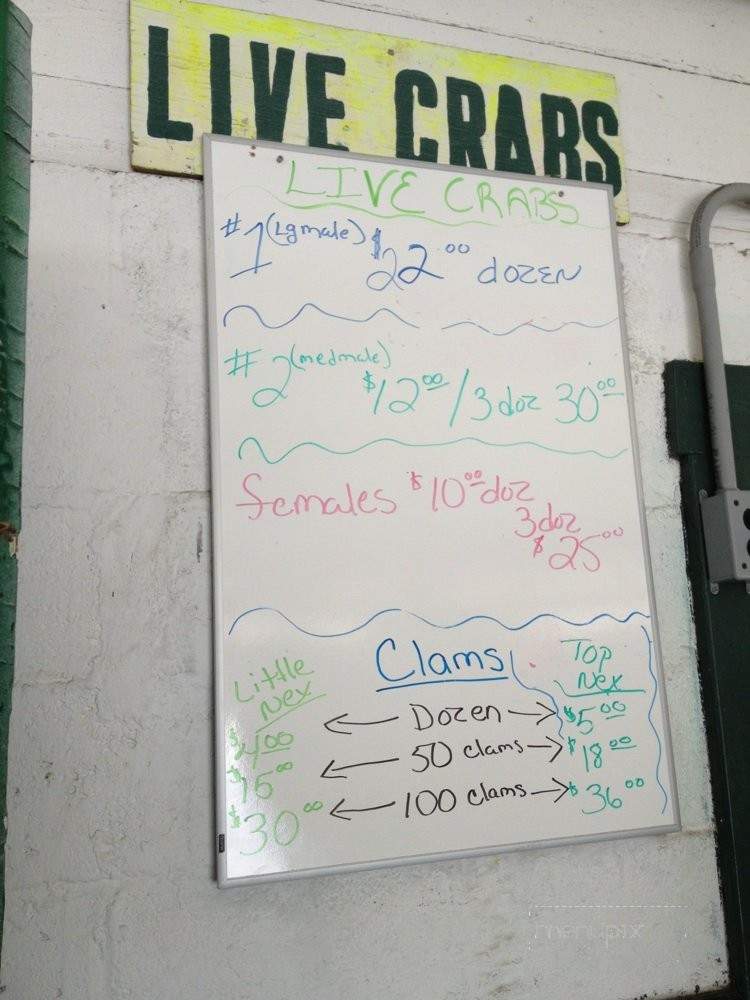 LIVE CRABS
LIVE CRABS
#1 (Lg male) $22.00 dozen
#2 (med male)
$12.00 / 3 doz 30.00
females $10.00 doz
3 doz
$25.00
Clams
Little Nex
Top Nex
$4.00 ← Dozen → $5.00
$15.00 ← 50 clams → $18.00
$30.00 ← 100 clams → $36.00
menupix